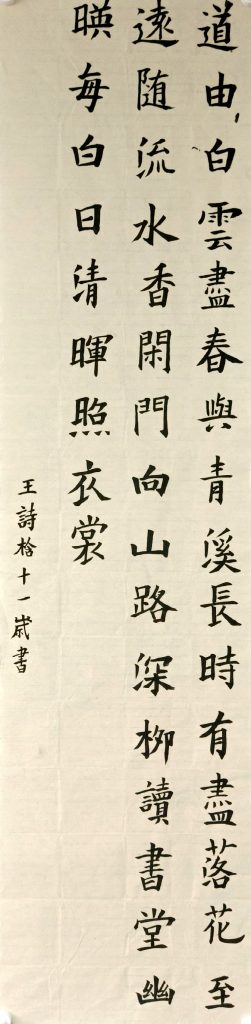 道由白雲盡春與青溪長時有盡落花至
遠隨流水香閑門向山路深柳讀書堂幽
暎每白日清暉照衣裳
王詩十一歲書